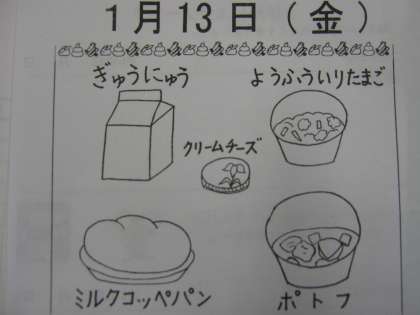 1月13日(金)
ぎゅうにゅう
ようふういりたまご
クリームチーズ
ミルクコッペパン
ポトフ